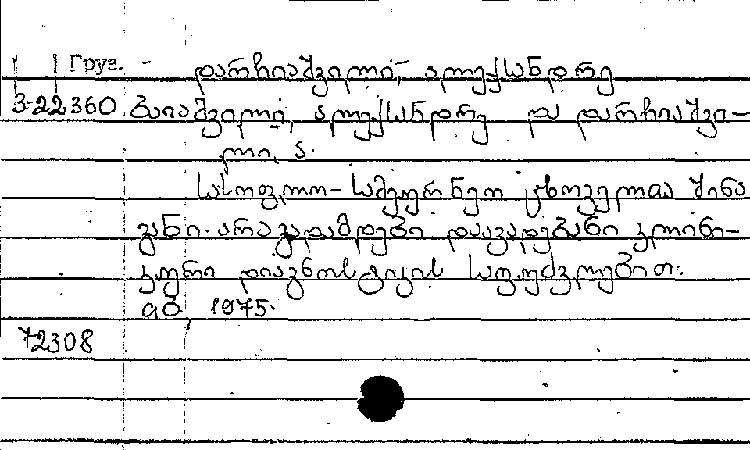 Груз. დარჩიაშვილი, ალექსანდრე
3-22360 გაიაშვილი, ალექსანდრე და დარჩიაშვი-
ლი, ა.
სასოფლო-სამეურნეო ცხოველთა შინა
განი არაგადამდები დაავადებანი კლინი-
კური დიაგნოსტიკის საფუძვლებით.
თბ, 1975.
72308